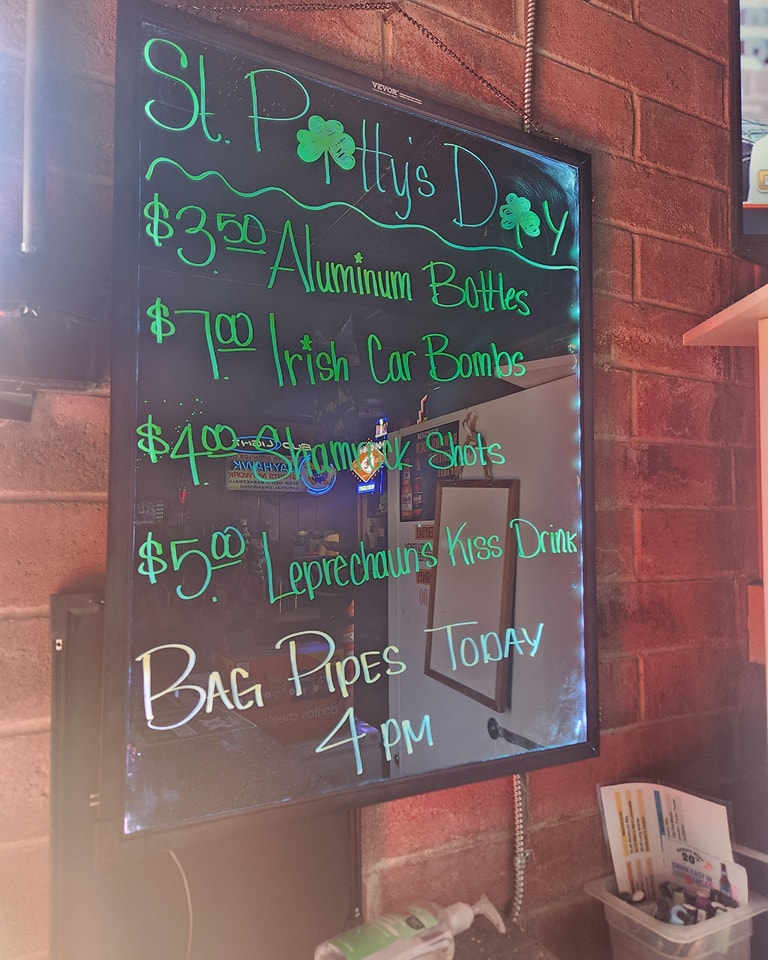 VEVOR
St. Patty's Day
$3.50 Aluminum Bottles
$7.00 Irish Car Bombs
$4.00 Shamrock Shots
$5.00 Leprechauns Kiss Drink
BAG PIPES TODAY
4 PM